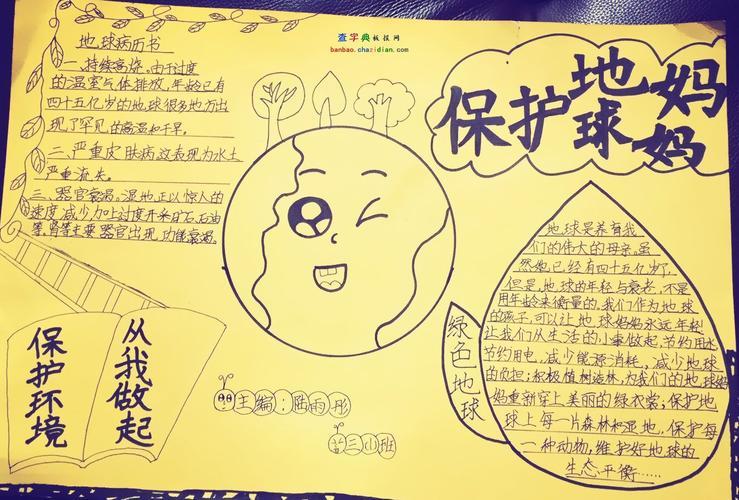 查字典板报网
banbao.chazidian.com
保护地球妈妈
地球病历书
一、持续高烧。由于过度
的温室气体排放,年龄已有
四十五亿岁的地球很多地方出
现了罕见的高温和干旱。
二、严重皮肤病,这表现为水土
严重流失。
三、器官衰竭。湿地正以惊人的
速度减少,加上过度开采矿石,石油
等,肾等主要器官出现功能衰竭。
保护环境
从我做起
主编:陆雨彤
三(1)班
绿色地球
地球是养育我
们的伟大的母亲。虽
然她已经有四十五亿岁了,
但是,地球的年轻与衰老,不是
用年龄来衡量的,我们作为地球
的孩子,可以让地球妈妈永远年轻!
让我们从生活的小事做起,节约用水
节约用电,减少能源消耗,减少地球
的负担;积极植树造林,为我们的地球妈
妈重新穿上美丽的绿衣裳;保护地
球上每一片森林和湿地,保护每
一种动物,维护好地球的
生态平衡......